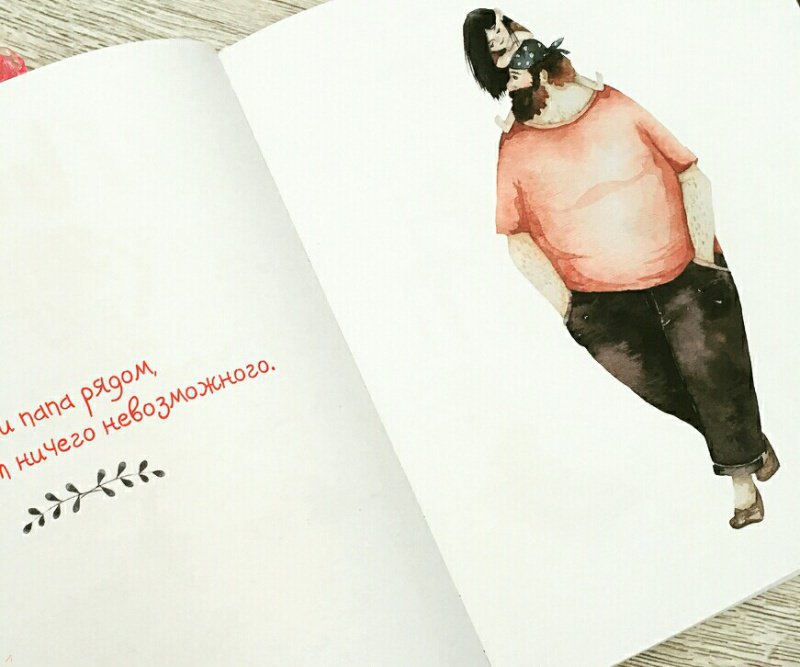 и папа рядом,
т ничего невозможного.